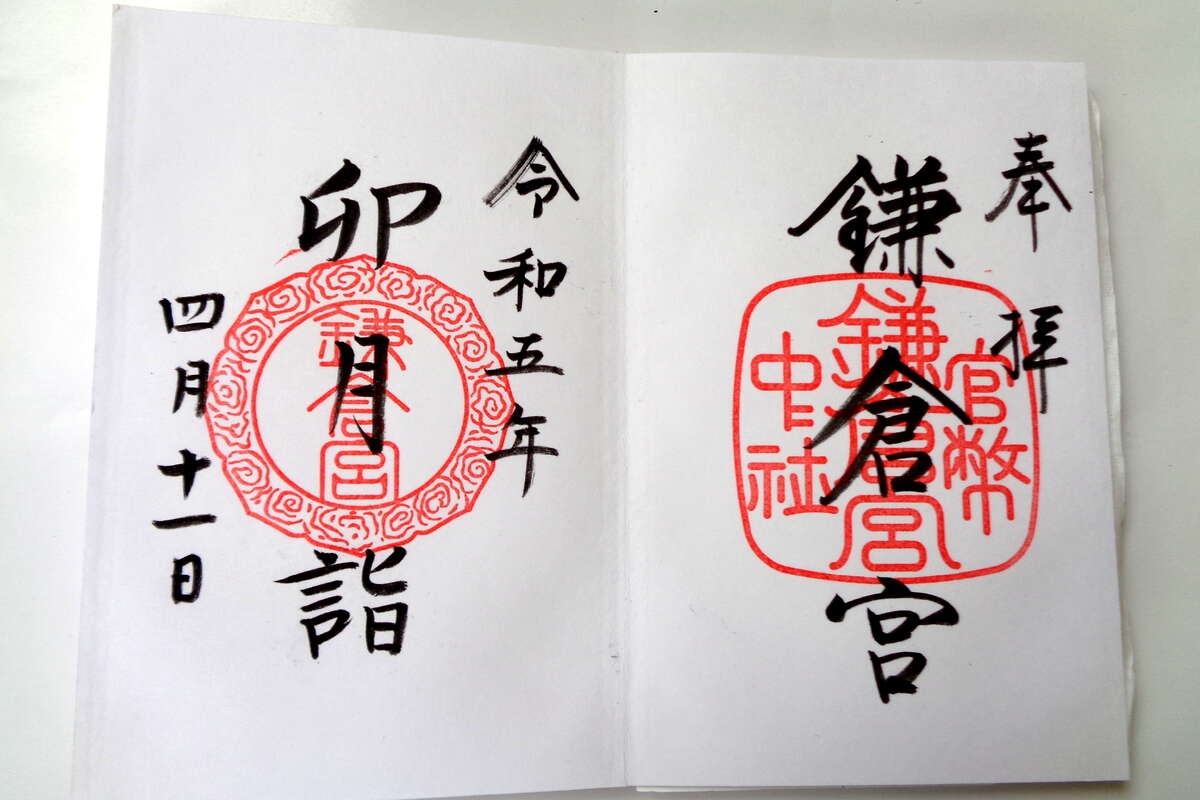 奉拝
鎌倉宮
官幣
鎌倉宮
中社
令和五年
卯月詣
鎌倉宮
四月十一日